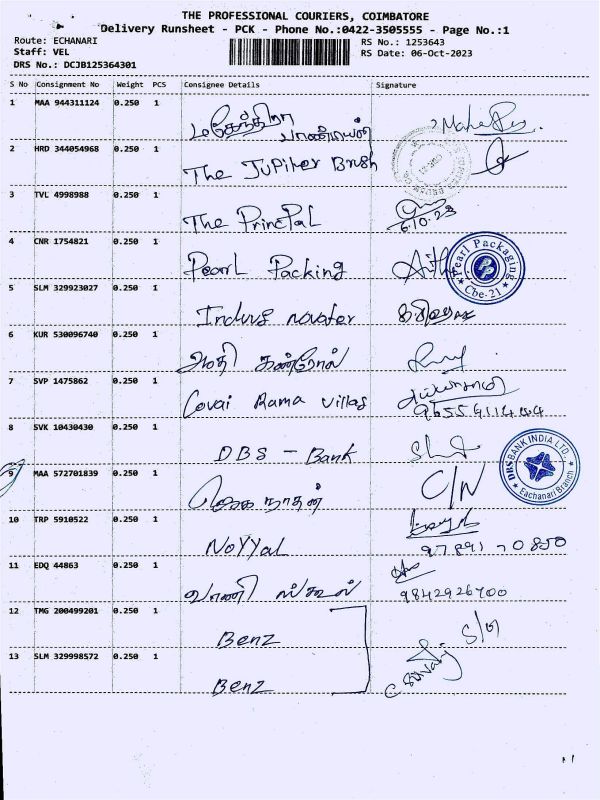 THE PROFESSIONAL COURIERS, COIMBATORE
Delivery Runsheet - PCK - Phone No.:0422-3505555 - Page No.:1
Route: ECHANARI
RS No.: 1253643
Staff: VEL
RS Date: 06-Oct-2023
DRS No.: DCJB125364301
S No Consignment No Weight PCS Consignee Details Signature
1 MAA 944311124 0.250 1
மகேந்திரா பாண்டியன்
2 HRD 344054968 0.250 1
The Jupiter Brush
3 TVL 4998988 0.250 1
The Princpal
6.10.23
4 CNR 1754821 0.250 1
Pearl Packing
Pearl Packaging
Cbe-21
5 SLM 329923027 0.250 1
6 KUR 530096740 0.250 1
7 SVP 1475862 0.250 1
Covai Rama Villas
8 SVK 10430430 0.250 1
DBS - Bank
DBS BANK INDIA LTD.,
Eachanari Branch
9 MAA 572701839 0.250 1
C/N
10 TRP 5910522 0.250 1
NoYYaL
97891 70850
11 EDQ 44863 0.250 1
வாணி ஸ்கூல்
9842926700
12 TMG 200499201 0.250 1
Benz
13 SLM 329998572 0.250 1
Benz